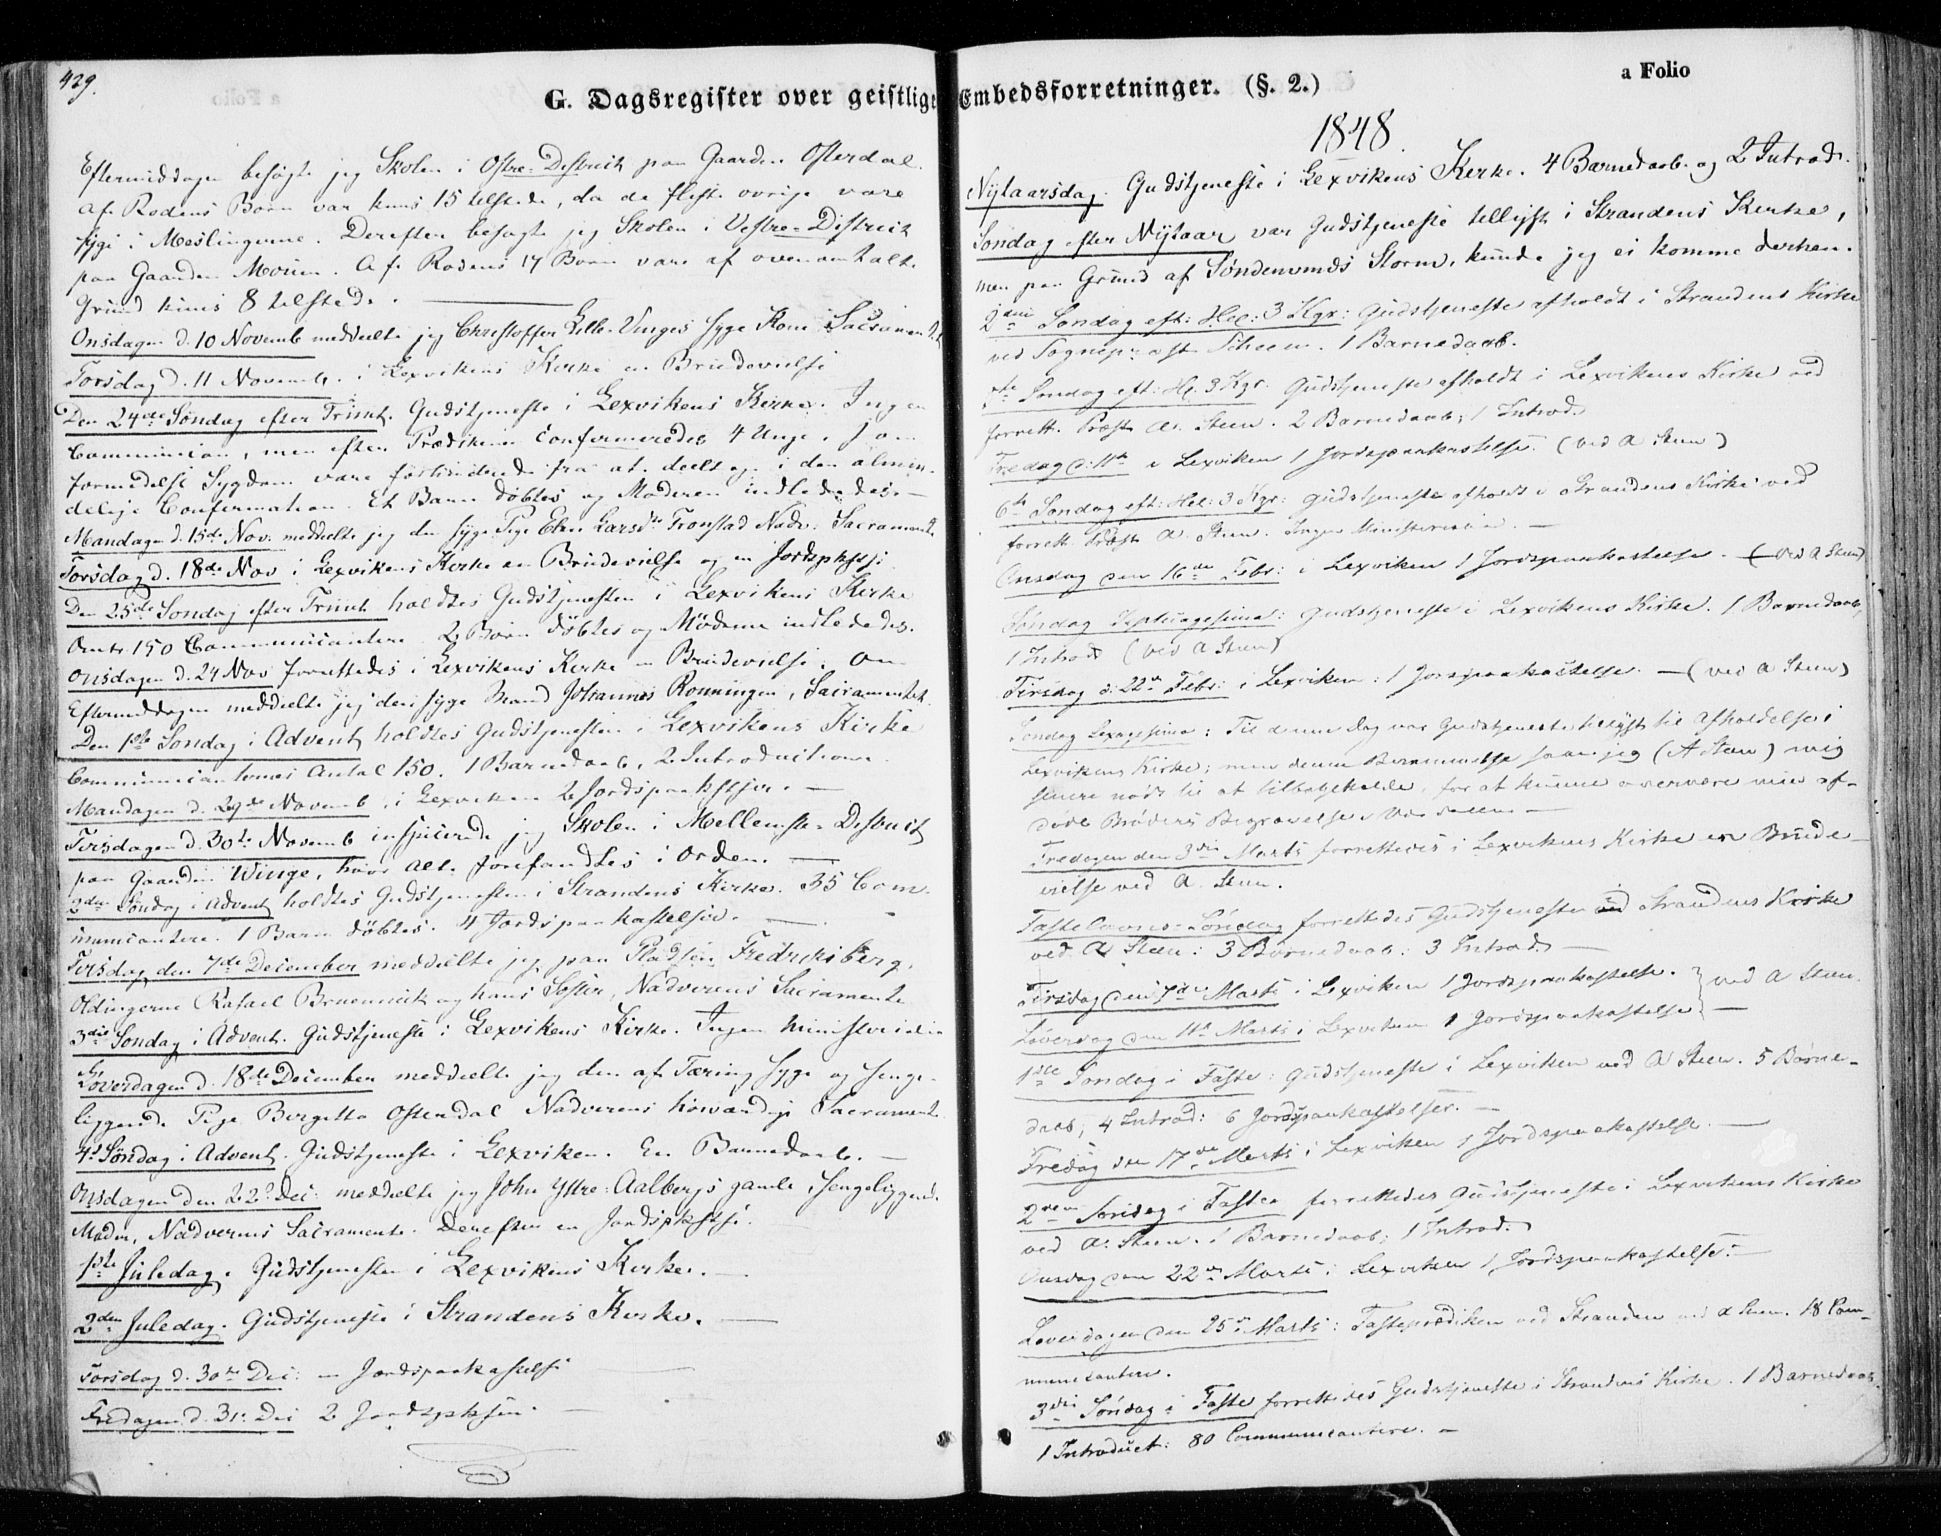 429.
G. Dagsregister over geistlige Embedsforretninger. (§. 2.)
a Folio
Eftermiddagen besøgte jeg Skolen i Østre-District paa Gaarden Osterdal.
Af Rodens Børn var kuns 15 tilstede, da de fleste øvrige vare
syge i Meslingerne. Derefter besøgte jeg Skolen i Vestre-District
paa Gaarden Morum. Af Rodens 17 Børn vare af ovenomtalte
Grund kuns 8 tilstede.
Onsdagen d. 10 Novemb meddeelte jeg Christoffer Lille-Vinges syge Kone Sacramentet
Torsdag d. 11 Novemb. i Lexvikens Kirke en Brudevielse
Den 24de Søndag efter Trinit. Gudstjeneste i Lexvikens Kirke. Ingen
Communion, men efter Prædikenen confirmeredes 4 Unge, som
formedelst Sygdom vare forhindrede fra at deeltage i den almin-
delige Confirmation. Et Barn døbtes og Moderen indledes.
Mandagen d. 15de Nov. meddeelte jeg den syge Pige Elen Larsdtr Tronstad Nadv: Sacramente
Torsdag d. 18de Nov i Lexvikens Kirke en Brudevielse og en Jordspkstse
Den 25de Søndag efter Trinit. holdtes Gudstjenesten i Lexvikens Kirke
Omtr 150 Communicantere 2 Børn døbtes og Mødrene indlededes.
Onsdagen d. 24 Nov forrettedes i Lexvikens Kirke en Brudevielse. Om
Eftermiddagen meddeelte jeg den syge Mand Johannes Ronningen, Sacramentet.
Den 1ste Søndag i Advent holdtes Gudstjenesten i Lexvikens Kirke
Communicanternes Antal 150. 1 Barnedaab, 2 Introductioner.
Mandagen d. 29de Novemb. i Lexviken 2 Jordspaakstser.
Tirsdagen d. 30te Novemb inspicerede jeg Skolen i Mellemste-District
paa Gaarden Winge, hvor alt forefandtes i Orden.
2den Søndag i Advent holdtes Gudstjenesten i Strandens Kirke. 35 Com-
municantere. 1 Barn døbtes. 4 Jordspaakastelser.
Tirsdag den 7de December meddeelte jeg paa Pladsen Fredriksberg,
Oldingerne Rafael Bruennick og hans Søster, Nadverens Sacramente
3die Søndag i Advent. Gudstjeneste i Lexvikens Kirke. Ingen Ministerialia
Løverdagen d. 18de December meddeelte jeg den af Tæring syge og senge-
liggende Pige Bergitta Osterdal Nadverens høiværdige Sacramente
4de Søndag i Advent. Gudstjeneste i Lexviken. En Barnedaab.
Onsdagen den 22de Dec: meddeelte jeg John Yttre-Aalbergs gamle, sengeliggende
Moder, Nadverens Sacramente. Derefter en Jordspkstse.
1ste Juledag. Gudstjenesten i Lexvikens Kirke.
2den Juledag. Gudstjeneste i Strandens Kirke.
Torsdag d. 30te Dec: en Jordspaakastelse
Fredagen d. 31. Dec 2 Jordspkstser.
1848.
Nytaarsdag. Gudstjeneste i Lexvikens Kirke. 4 Barnedaab og 2 Introd.
Søndag efter Nytaar var Gudstjeneste tellyst i Strandens Kirke,
men paa Grund af Søndenvinds Storm, kunde jeg ei komme derhen.
2den Søndag eft: Hel: 3 Kgr: Gudstjeneste afholdt i Strandens Kirke
ved Sognepræst Scheen. 1 Barnedaab.
Søndag eft: He. 3 Kgr. Gudstjeneste afholdt i Lexvikens Kirke ved
forrett. Præst A. Steen. 2 Barnedaab; 1 Introd.
Fredag d: 11te i Lexviken 1 Jordspaakastelse. (ved A Steen)
6te Søndag eft: Hel: 3 Kgr: Gudstjeneste afholdt i Strandens Kirke ved
forrett. Præst A. Steen. Ingen Ministerialia.
Onsdag den 16de Febr: i Lexviken 1 Jordspaakastelse. (ved A Steen)
Søndag Septuagesima: Gudstjeneste i Lexvikens Kirke. 1 Barnedaab,
1 Introd. (ved A Steen)
Tirsdag d: 22de Febr: i Lexviken: 1 Jordspaakastelse. — (ved A Steen)
Søndag Sexagesima: Til denne Dag var Gudstjeneste tillyst til Afholdelse i
Lexvikens Kirke; men denne Berammelse saae jeg (A Steen) mig
senere nødt til at tilbagekalde, for at kunne overvære min af-
døde Broders Begravelse i
Fredagen den 3die Marts forrettedes i Lexvikens Kirke en Brude-
vielse ved A. Steen.
Fastelavns-Søndag forrettedes Gudstjeneste i Strandens Kirke
ved A Steen: 3 Barnedaab: 3 Introd.
Tirsdag den 7de Marts i Lexviken 1 Jordspaakastelse. } ved A Steen.
Løverdag den 11te Marts i Lexviken 1 Jordspaakastelse
1ste Søndag i Faste: Gudstjeneste i Lexviken ved A Steen. 5 Barne-
daab, 4 Introd: 6 Jordspaakastelser.
Fredag den 17de Marts i Lexviken 1 Jordspaakastelse.
2den Søndag i Faste forrettedes Gudstjeneste i Lexvikens Kirke
ved A. Steen. 1 Barnedaab; 1 Introd.
Onsdag den 22de Marts i Lexviken 1 Jordspaakastelse.
Løverdagen den 25de Marts: Fasteprædiken ved Stranden ved A Steen. 18 Com-
municantere.
3die Søndag i Faste forrettedes Gudstjeneste i Strandens Kirke. 1 Barnedaab.
1 Introduct: 80 Communicantere.